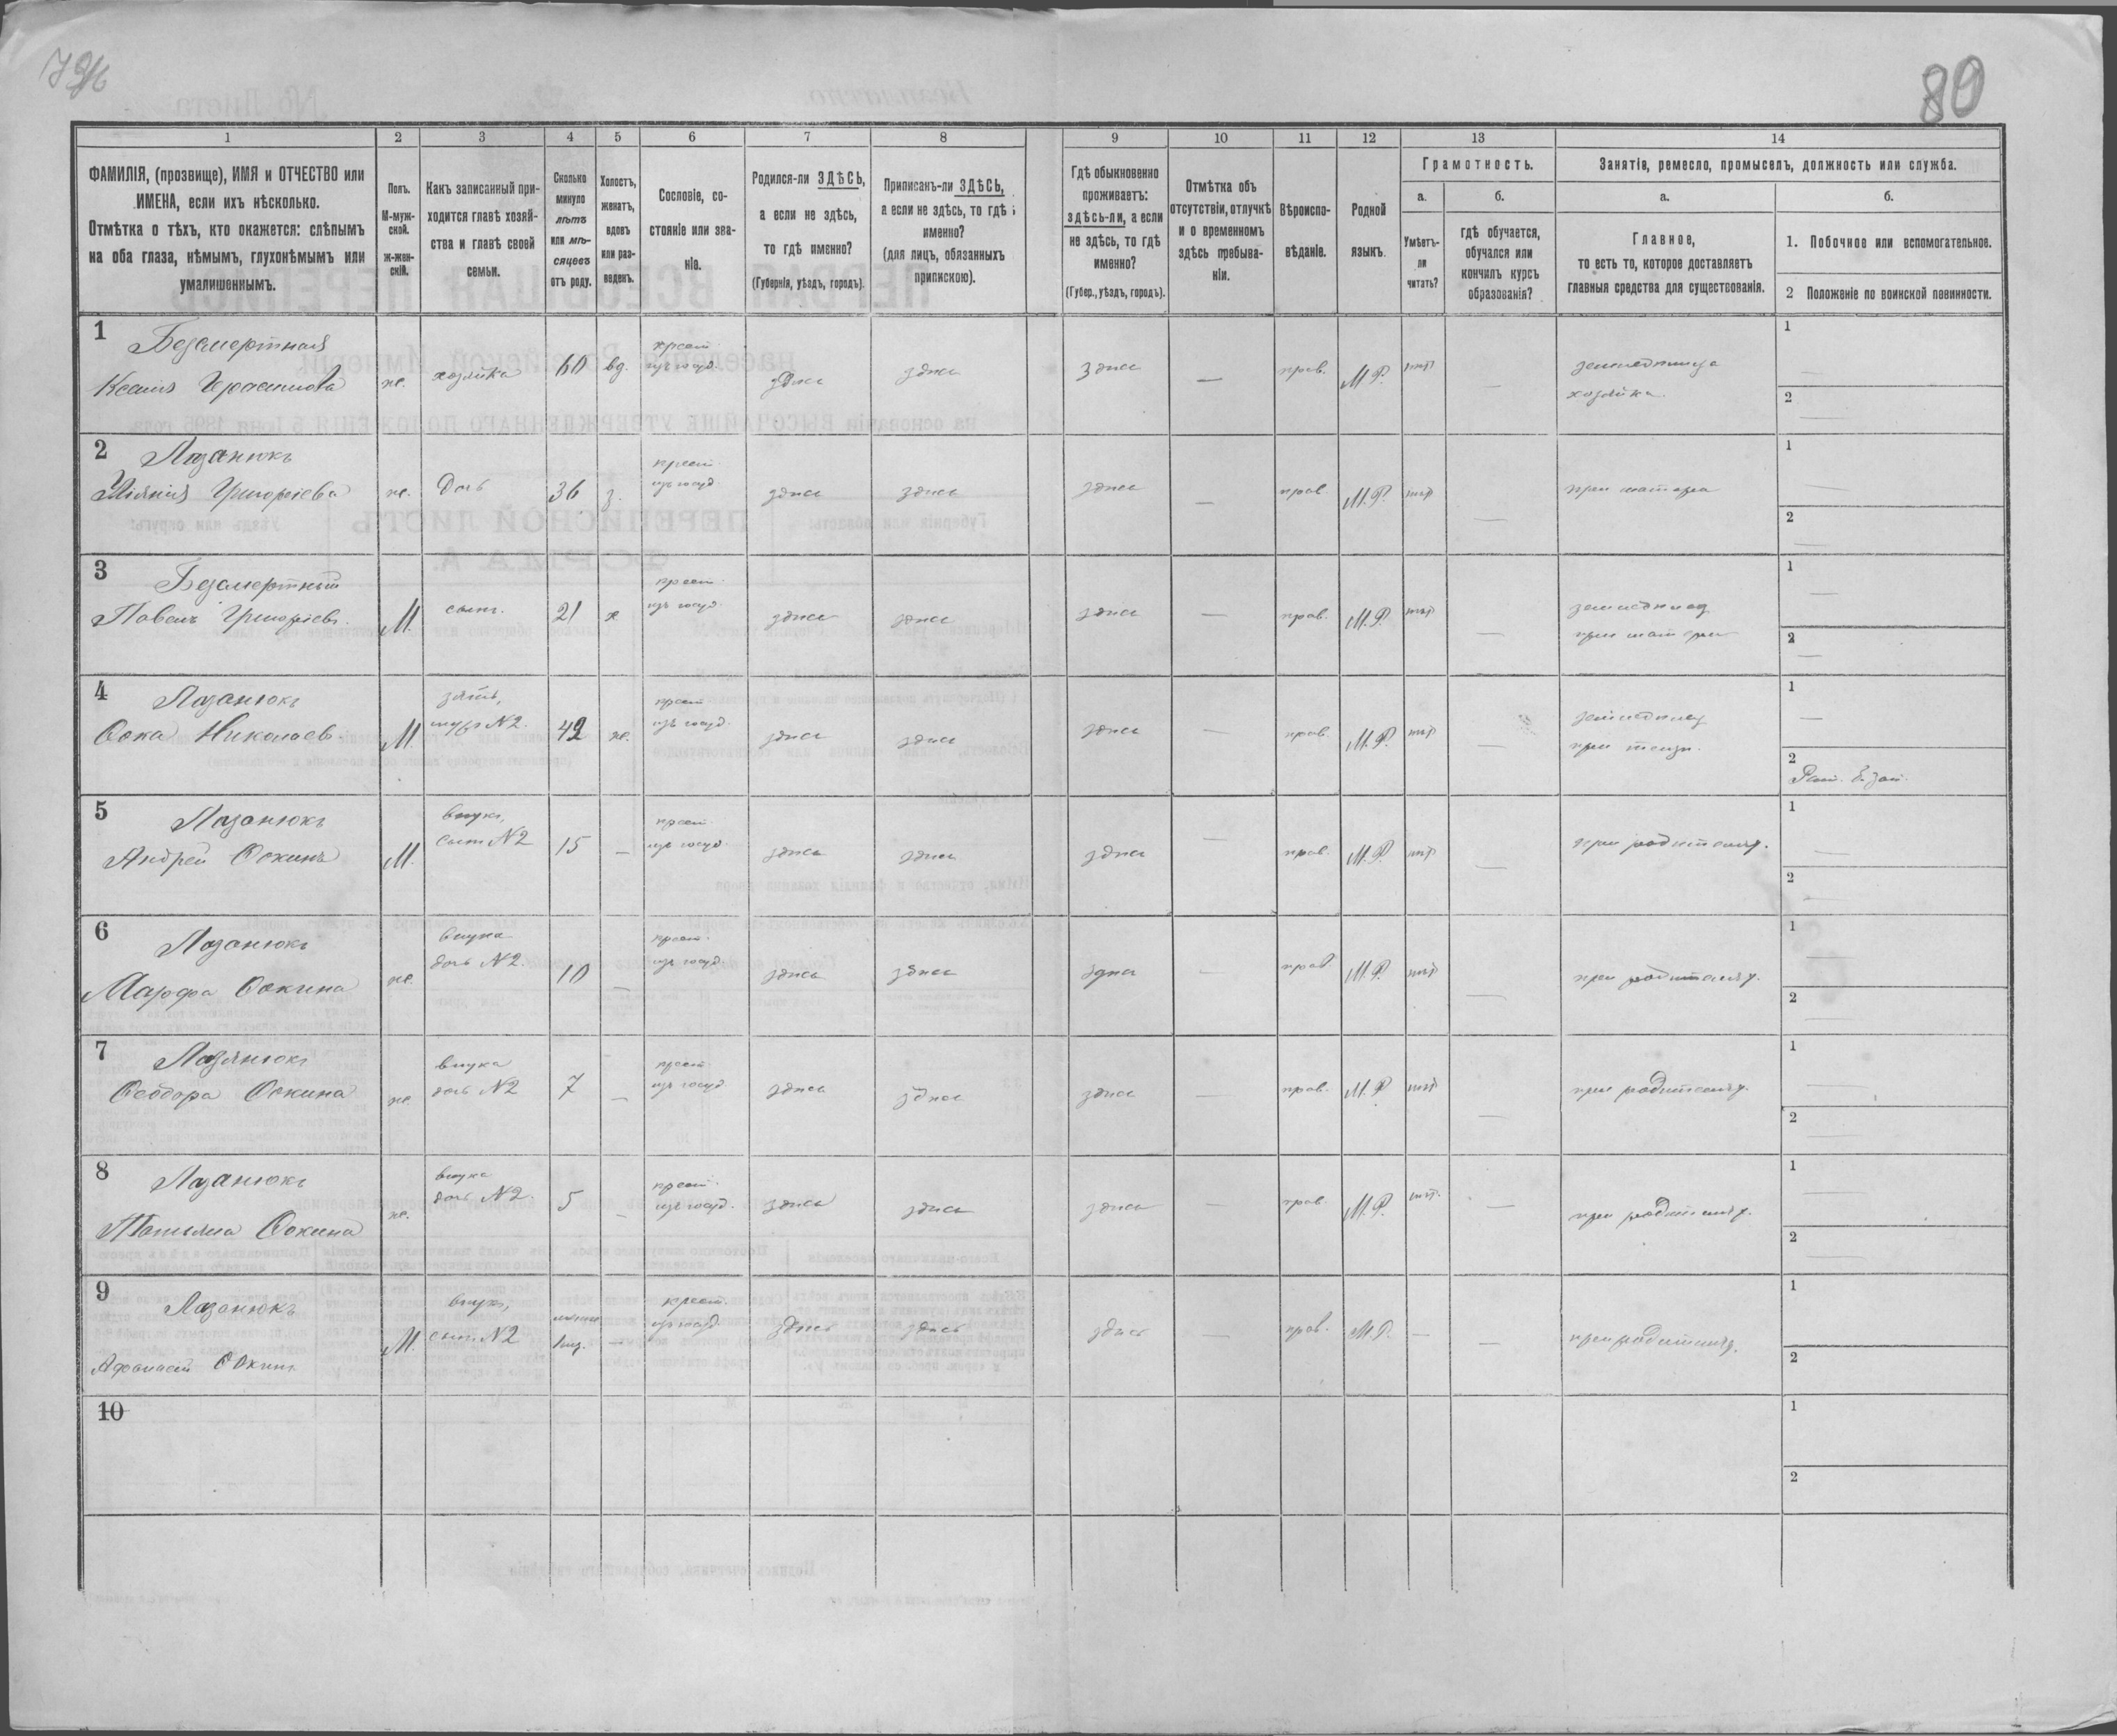 79б
80
1
2
3
4
5
6
7
8
9
10
11
12
13
14
ФАМИЛІЯ, (прозвище), ИМЯ и ОТЧЕСТВО или
ИМЕНА, если ихъ нѣсколько.
Отмѣтка о тѣхъ, кто окажется: слѣпымъ
на оба глаза, нѣмымъ, глухонѣмымъ или
умалишеннымъ.
Полъ.
М-муж-
ской.
ж-жен-
скій.
Какъ записанный при-
ходится главѣ хозяй-
ства и главѣ своей
семьи.
Сколько
минуло
лѣтъ
или мѣ-
сяцевъ
отъ роду.
Холостъ,
женатъ,
вдовъ
или раз-
веденъ.
Сословіе, со-
стояніе или зва-
ніе.
Родился-ли ЗДѢСЬ,
а если не здѣсь,
то гдѣ именно?
(Губернія, уѣздъ, городъ).
Приписанъ-ли ЗДѢСЬ,
а если не здѣсь, то гдѣ
именно?
(для лицъ, обязанныхъ
припискою).
Гдѣ обыкновенно
проживаетъ:
здѣсь-ли, а если
не здѣсь, то гдѣ
именно?
(Губер., уѣздъ, городъ).
Отмѣтка объ
отсутствіи, отлучкѣ
и о временномъ
здѣсь пребыва-
ніи.
Вѣроиспо-
вѣданіе.
Родной
языкъ.
Грамотность.
а.
Умѣетъ-
ли
читать?
б.
гдѣ обучается,
обучался или
кончилъ курсъ
образованія?
Занятія, ремесло, промыселъ, должность или служба.
а.
Главное,
то есть то, которое доставляетъ
главныя средства для существованія.
б.
1. Побочное или вспомогательное.
2 Положеніе по воинской повинности.
1 Безсмертная
Ксенія Герасимова ж. хозяйка 60 вд. крест. изъ госуд. здѣсь здѣсь здѣсь — прав. М.Р. нѣт — земледѣлица
хозяйка.
1 —
2 —
2 Лазанюкъ
Уліянія Григоріева ж. дочь 36 з. крест. изъ госуд. здѣсь здѣсь здѣсь — прав. М.Р. нѣт — при матери
1 —
2 —
3 Безсмертный
Павелъ Григоріевъ. М. сынъ. 21 х крест. изъ госуд. здѣсь здѣсь здѣсь — прав. М.Р. нѣт — земледѣлец
при матери
1 —
2 —
4 Лазанюкъ
Фока Николаев. М. зять, мужъ №2. 42 ж. крест. изъ госуд. здѣсь здѣсь здѣсь — прав. М.Р. нѣт — земледѣлец
при тещи.
1 —
2
5 Лазанюкъ
Андрей Фокинъ М. внукъ, сынъ №2 15 — крест. изъ госуд. здѣсь здѣсь здѣсь — прав. М.Р. нѣт — при родителях.
1
2 —
6 Лазанюкъ
Марфа Фокина ж. внука дочь №2. 10 — крест. изъ госуд. здѣсь здѣсь здѣсь — прав. М.Р. нѣт — при родителях.
1 —
2 —
7 Лазанюкъ
Феодора Фокина ж. внука дочь №2 7 — крест. изъ госуд. здѣсь здѣсь здѣсь — прав. М.Р. нѣт — при родителях.
1
2 —
8 Лазанюкъ
Татьяна Фокина ж. внука дочь №2. 5 — крест. изъ госуд. здѣсь здѣсь здѣсь — прав. М.Р. нѣт. — при родителях.
1 —
2 —
9 Лазанюкъ
Афанасій Фокинъ М. внукъ, сынъ №2 менѣе 1 мѣс. — крест. изъ госуд. здѣсь здѣсь здѣсь — прав. М.Р. — — при родителях.
1
2
10
1
2